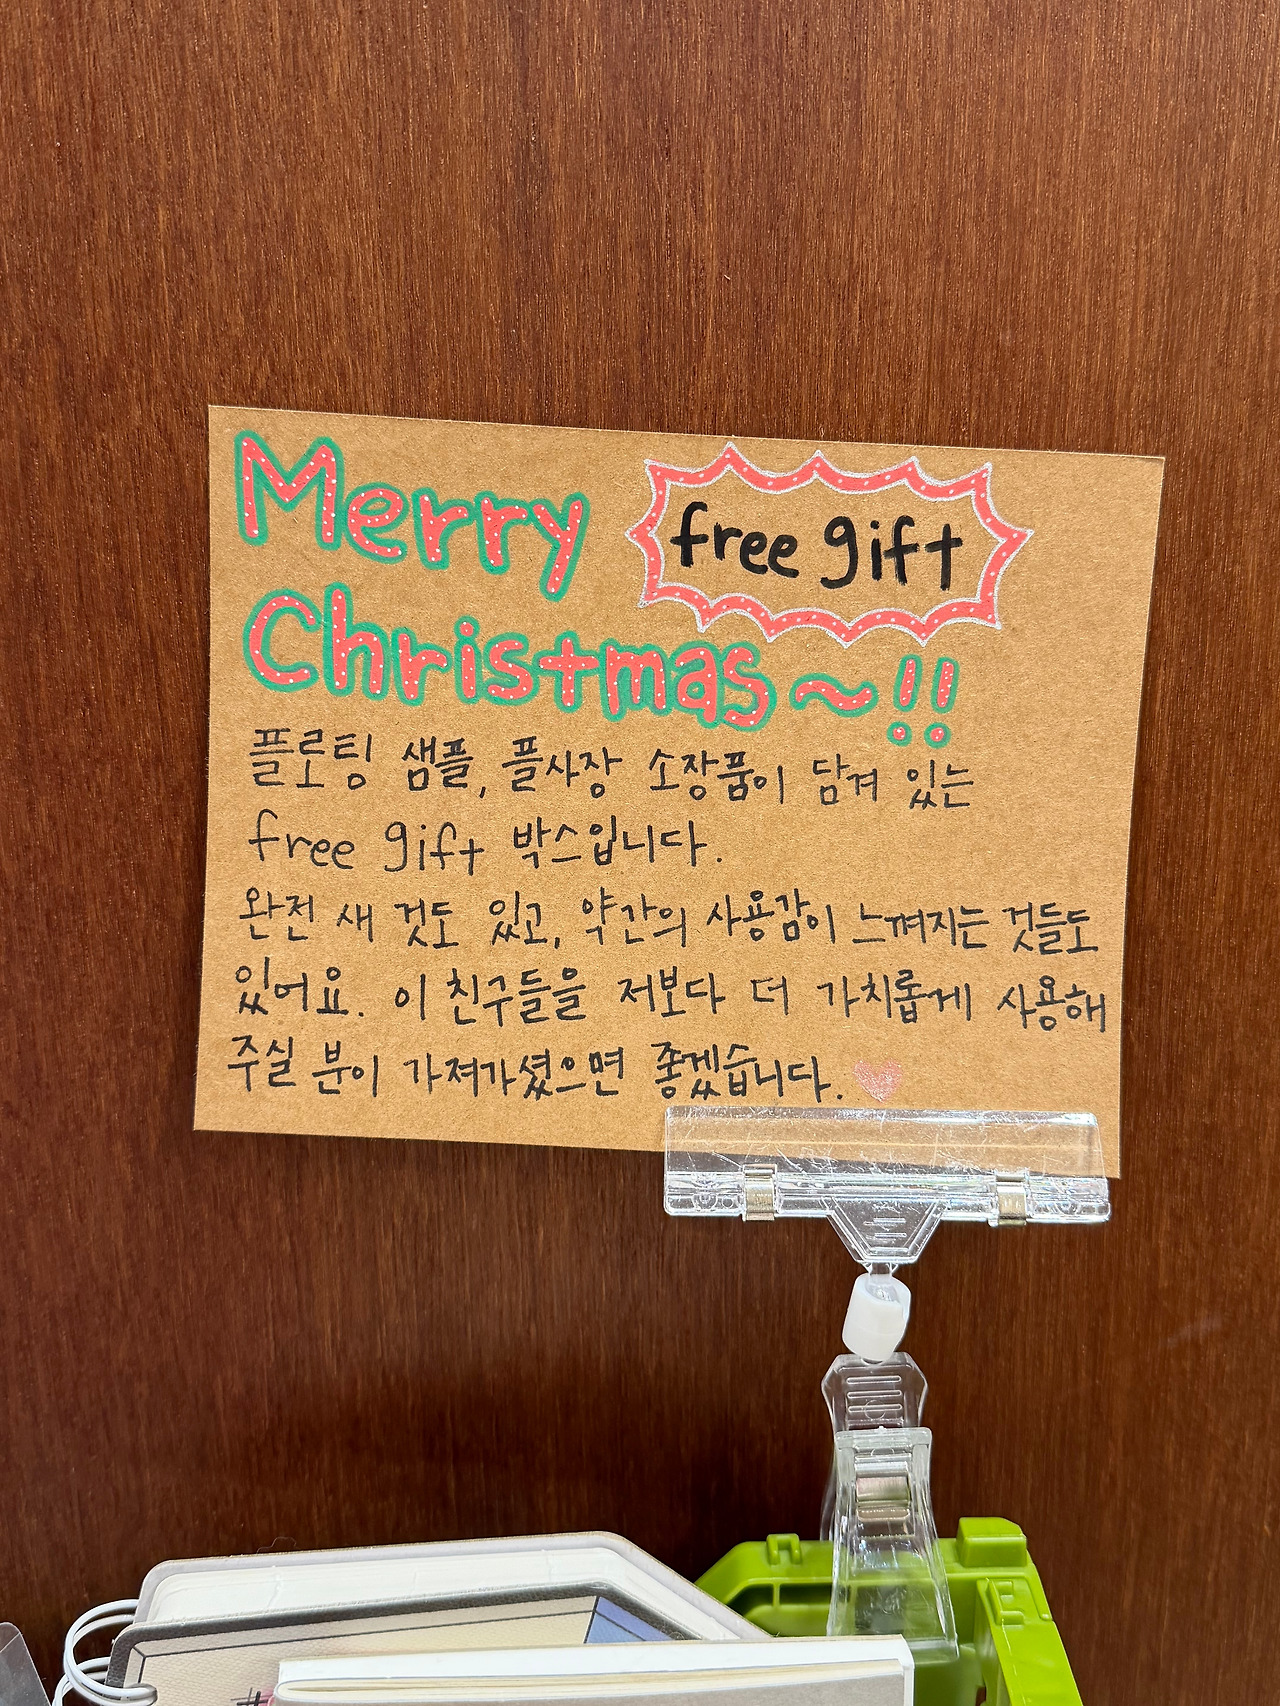 Merry
free gift
Christmas~!!
플로팅 샘플, 플사장 소장품이 담겨 있는
free gift 박스입니다.
완전 새 것도 있고, 약간의 사용감이 느껴지는 것들도
있어요. 이 친구들을 저보다 더 가치롭게 사용해
주실 분이 가져가셨으면 좋겠습니다.